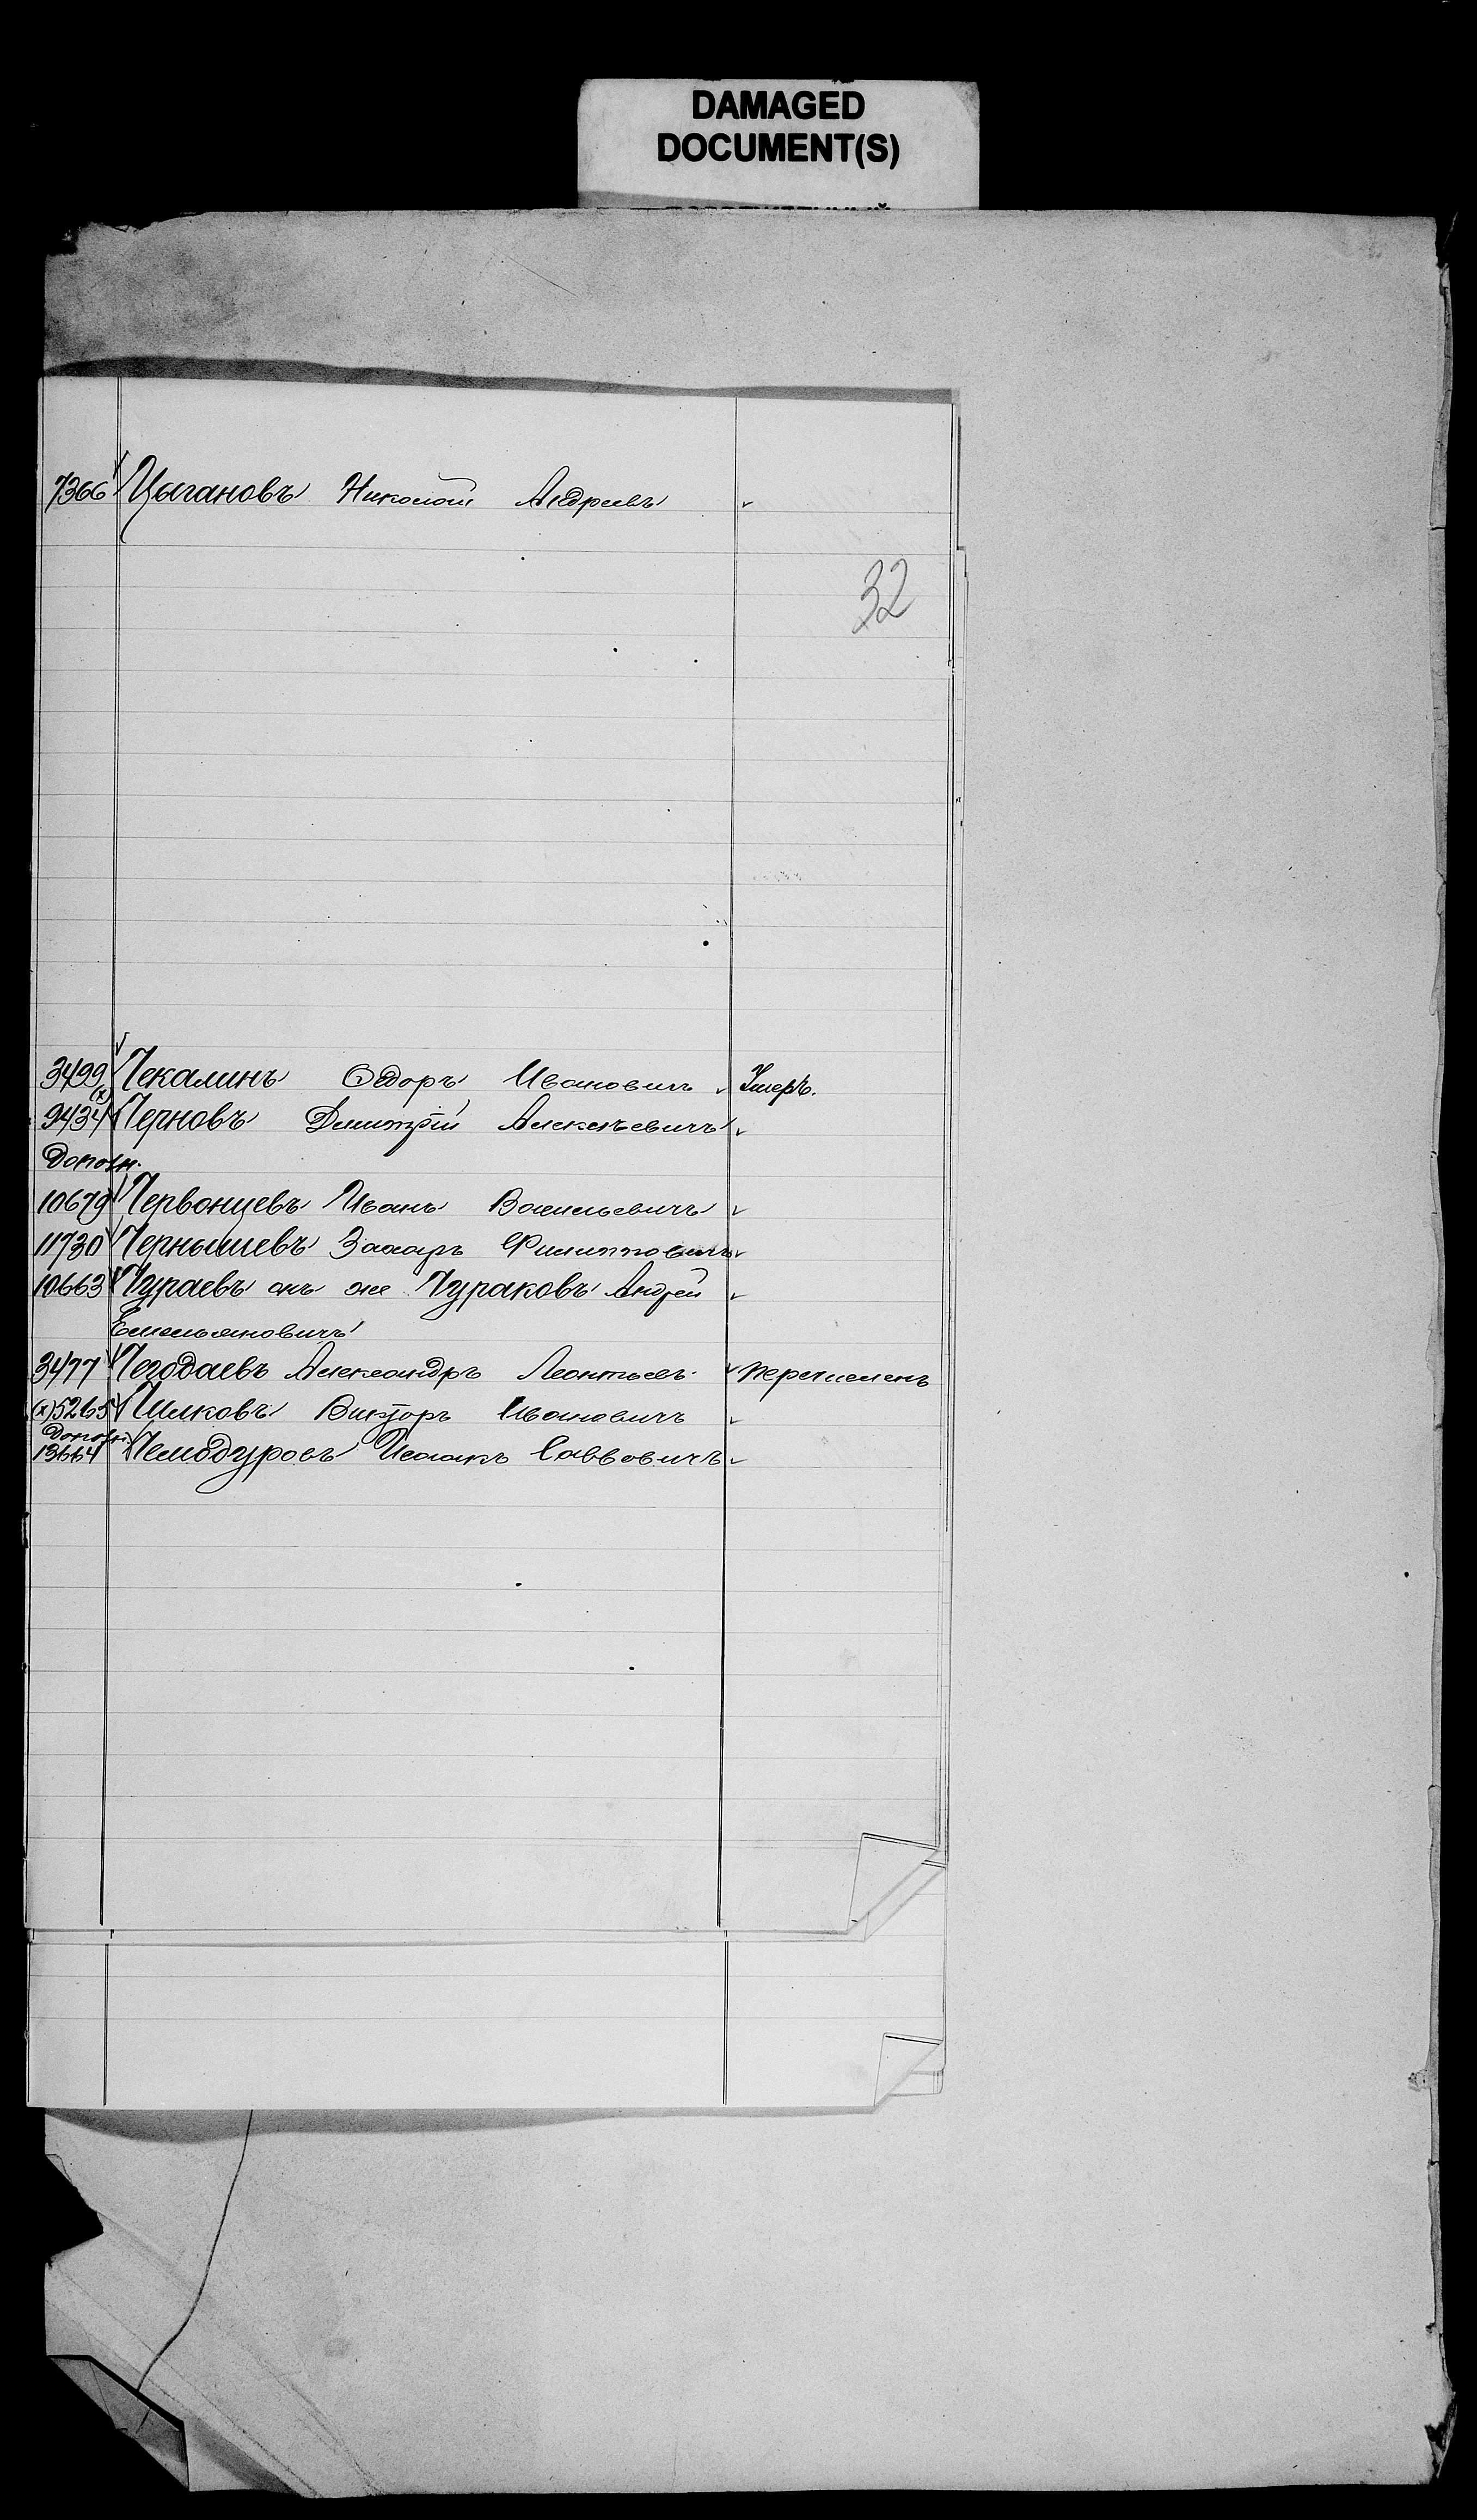 DAMAGED
DOCUMENT(S)
7366 Цыгановъ Николай Андреевъ
32
3499 Чекалинъ Ѳедоръ Ивановичъ Умеръ.
(х)
9434 Черновъ Дмитрій Алексѣевичъ
Дополн.
10679 Червонцевъ Иванъ Васильевичъ
11730 Чернышевъ Захаръ Филипповичъ
10663 Чураевъ онъ же Чураковъ Андрей
Емельяновичъ
3477 Чегодаевъ Александръ Леонтьевъ перечисленъ
(х) 5265 Чилковъ Викторъ Ивановичъ
Дополн.
13664 Чемодуровъ Исаакъ Саввовичъ